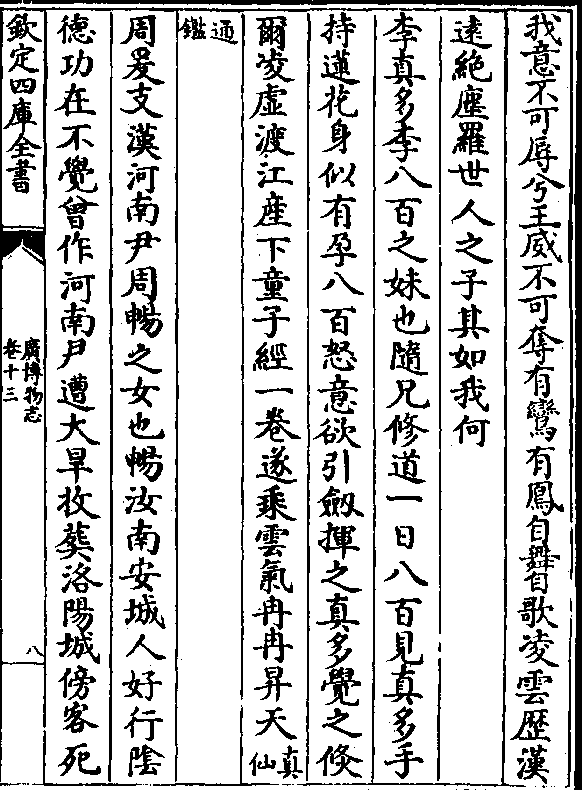 我意不可辱兮王威不可奪有鸞有鳳自舞自歌凌雲歷漢
遠絶塵羅世人之子其如我何
李真多李八百之妹也隨兄修道一日八百見真多手
持蓮花身似有孕八百怒意欲引劒揮之真多覺之倐
爾凌虛渡江產下童子經一卷遂乘雲氣冉冉昇天真仙
通鑑
周爰支漢河南尹周暢之女也暢汝南安城人好行陰
德功在不覺曾作河南尹遭大旱收葬洛陽城傍客死
欽定四庫全書
廣博物志
卷十三
八